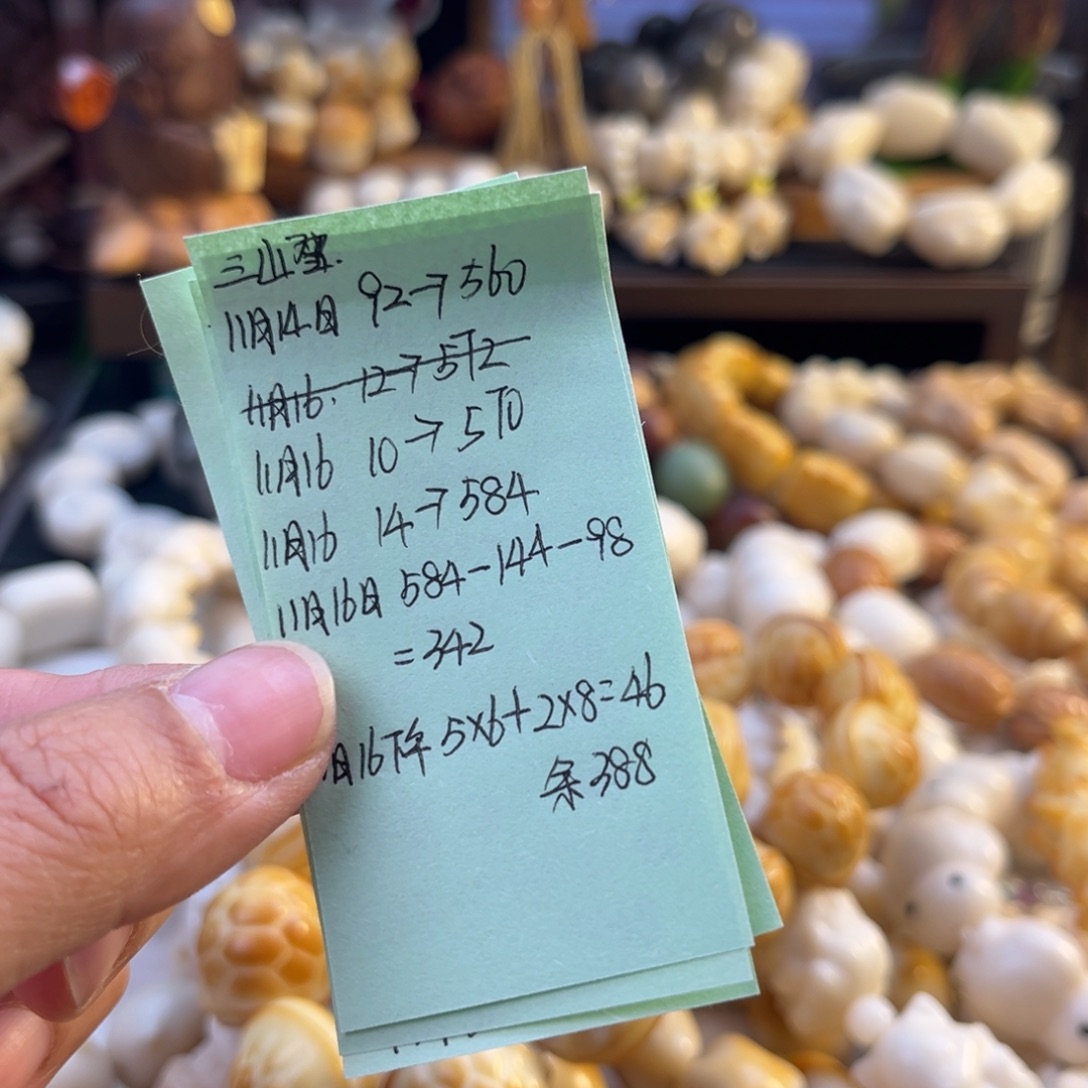 三山聖.
11月14日 92→560
11月16. 12→572
11月16 10→570
11月16 14→584
11月16日 584-144-98
=342
月16下午 5×6+2×8=46
余388